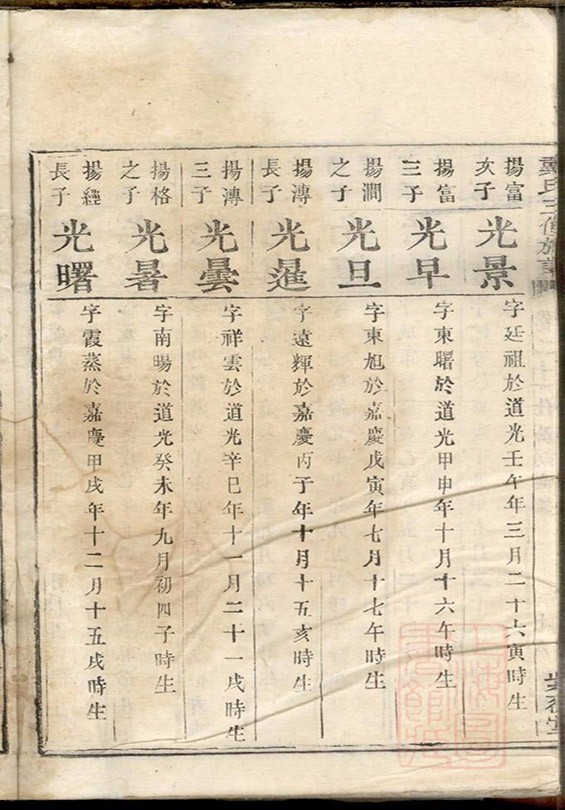 戴氏三修族譜
揚富次子
光景
字廷祖於道光壬午年三月二十六寅時生
揚富三子
光早
字東曙於道光甲申年十月十六午時生
揚澗之子
光旦
字東旭於嘉慶戊寅年七月十七午時生
揚溥長子
光暹
字遠輝於嘉慶丙子年十月十五亥時生
揚溥三子
光曇
字祥雲於道光辛巳年十一月二十一戌時生
揚格之子
光暑
字南暘於道光癸未年九月初四子時生
揚經長子
光曙
字霞蒸於嘉慶甲戌年十二月十五戌時生